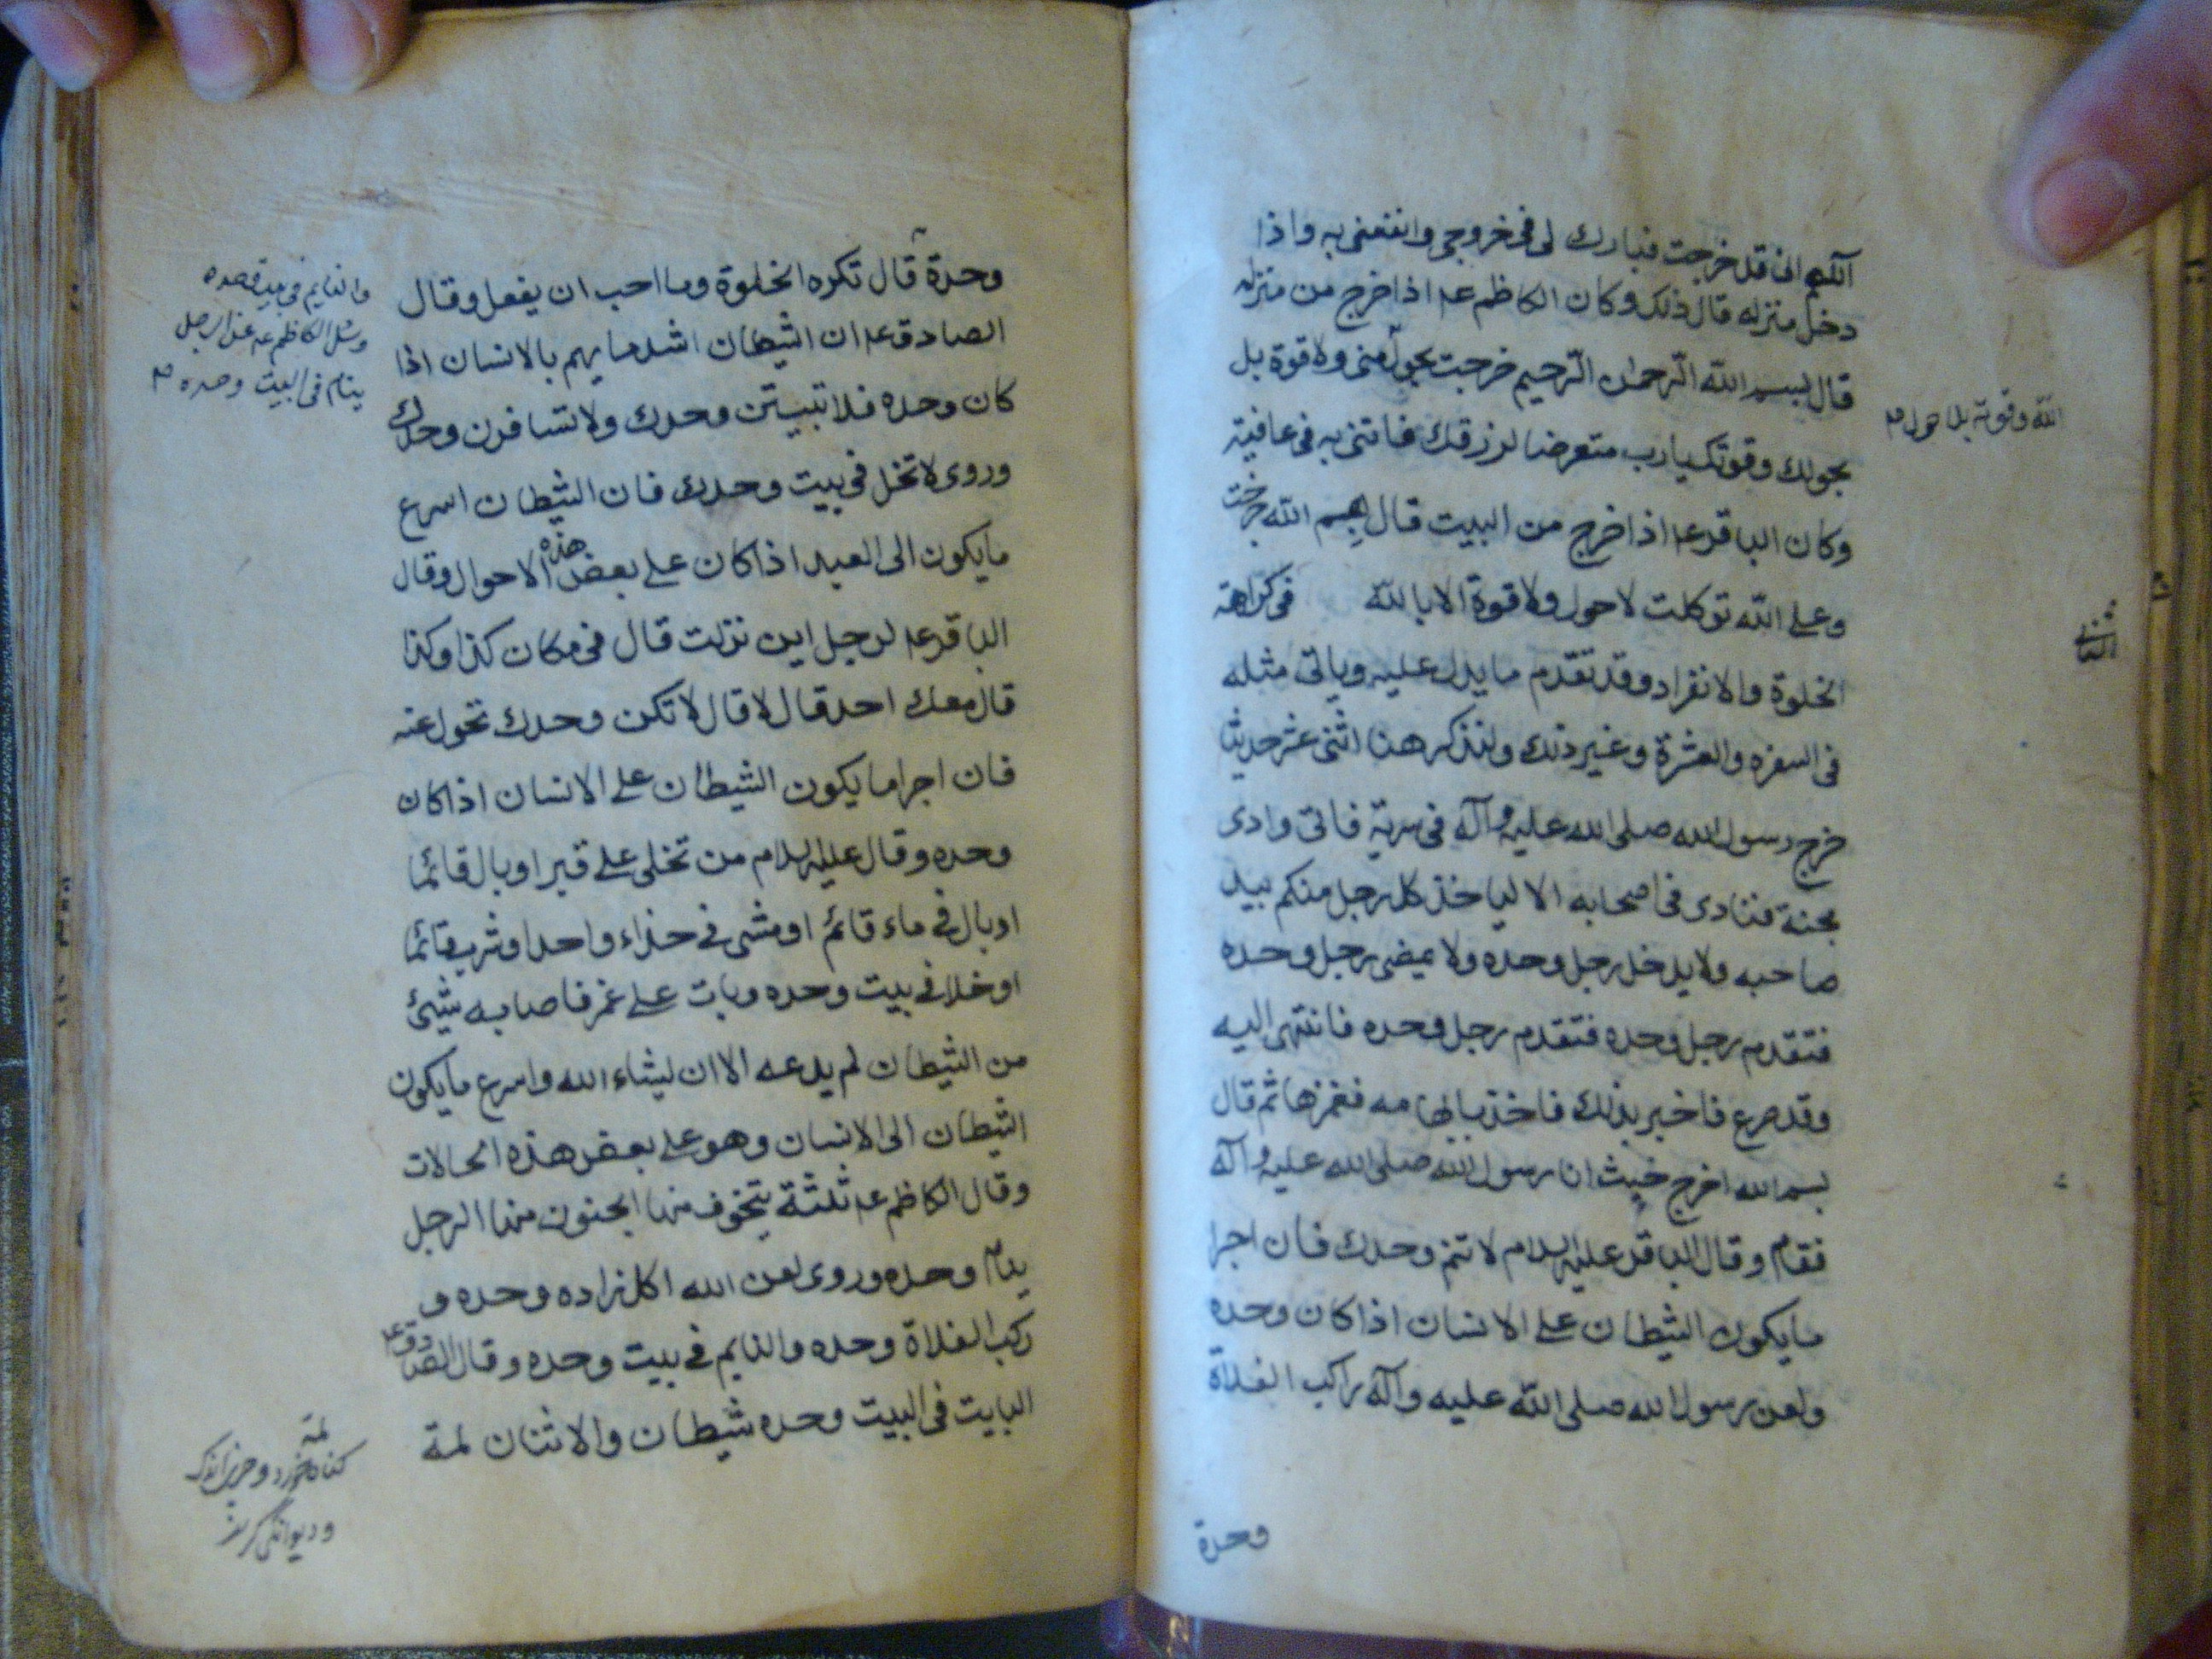 اللهم انى قد خرجت فبارك لى فى خروجى وانفعنى به واذا
دخل منزله قال ذلك وكان الكاظم عه اذا خرج من منزله
قال بسم الله الرحمن الرحيم خرجت بحول منى ولا قوة بل
بحولك وقوتك يارب متعرضا لرزقك فاتنى به فى عافية
وكان الباقر عه اذا خرج من البيت قال بسم الله خرجت
وعلى الله توكلت لا حول ولا قوة الا بالله فى كراهة
الخلوة والانفراد وقد تقدم ما يدل عليه وياتى مثله
فى السفره والعشرة وغير ذلك ولنذكر هنا اثنى عشر حديثا
خرج رسول الله صلى الله عليه وآله فى سرية فاتى وادى
مجنة فنادى فى اصحابه الا لياخذ كل رجل منكم بيد
صاحبه ولا يدخل رجل وحده ولا يمضى رجل وحده
فتقدم رجل وحده فتقدم رجل وحده فانتهى اليه
وقد صرع فاخبر بذلك فاخذ بابهامه فغمزها ثم قال
بسم الله اخرج خبيث انا رسول الله صلى الله عليه وآله
فقام وقال الباقر عليه السلام لا تنم وحدك فان اجرا
ما يكون الشيطان على الانسان اذا كان وحده
ولعن رسول الله صلى الله عليه وآله راكب الفلاة
وحدة
الله وقوته بلا حول
الثانى
وحدة قال تكره الخلوة وما احب ان يفعل وقال
الصادق عه ان الشيطان اشد ما يهم بالانسان اذا
كان وحده فلا تبيتن وحدك ولا تسافرن وحدك
وروى لا تخل فى بيت وحدك فان الشيطان اسرع
ما يكون الى العبد اذا كان على بعض هذه الاحوال وقال
الباقر عه لرجل اين نزلت قال فى مكان كذا وكذا
قال معك احد قال لا قال لا تكن وحدك تحول عنه
فان اجرا ما يكون الشيطان على الانسان اذا كان
وحده وقال عليه السلام من تخلى على قبر او بال قائما
او بال فى ماء قائم او مشى فى حذاء واحد او شرب قائما
او خلا فى بيت وحده وبات على غمر فاصابه شيئ
من الشيطان لم يدعه الا ان يشاء الله واسرع ما يكون
الشيطان الى الانسان وهو على بعض هذه الحالات
وقال الكاظم عه ثلثة يتخوف منها الجنون منها الرجل
ينام وحده وروى لعن الله اكل زاده وحده و
ركب الفلاة وحده والنايم فى بيت وحده وقال الصادق عه
البايت فى البيت وحده شيطان والاثنان لمة
والنايم فى بيت وحده
وسئل الكاظم عه عن الرجل
ينام فى البيت وحده
لمة
كناه خورد و چيز اندك
و ديوانگى